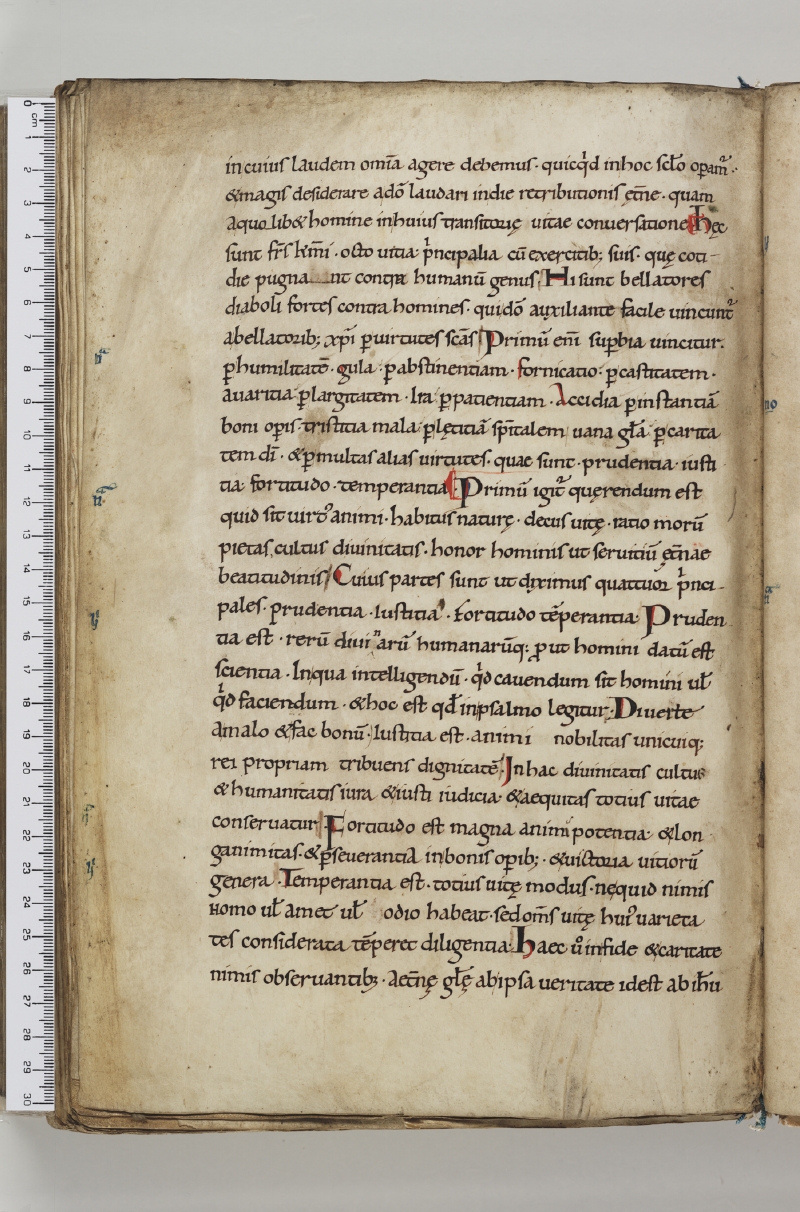 in cuius laudem om̅ia agere debemus· quicq̍d in hoc scl̅o opam̅ᷓ·
&magis desiderare a do̅ laudari in die retributionis et̅ne· quam
a quo lib& homine in huius transitorię vitae conversatione hęc
sunt fr̅s km̅i· octo vitia p̍ncipalia cu̅ exercitib; suis· quę coti-
die pugna nt contra humanu̅ genus· Hi sunt bellatores
diaboli fortes contra homines· qui do̅ auxiliante facile vincunt᷒
a bellatorib; xp̅i ꝑ virtutes sc̅as Primu̅ eni̅ suꝑbia vincitur.
ꝑ humilitate̅· gula ꝑ abstinentiam· fornicatio· ꝑ castitatem·
avaritia ꝑ largitatem· Ira ꝑ patientiam· Accidia ꝑ instantia̅
boni oꝑis· tristitia mala ꝑ lętitia̅ sp̅italem vana gl̅a ꝑ carita
tem di̅· &ꝑ multas alias virtutes· quae sunt· prudentia· iusti
tia fortitudo· temperantia Primu̅ igit᷒ querendum est
quid sit virt᷒ animi· habitus naturę· decus vitę· ratio moru̅
pietas, cultus divinitatis· honor hominis ut servitiu̅ et̅nae
beatitudinis Cuius partes sunt ut diximus quattuor p̍nci-
pales· prudentia· Iustitia· fortitudo te̅perantia· Pruden
tia est· reru̅ divinaru̅ humanaru̅q; ꝓut homini datu̅ est
scientia· In qua intelligendu̅· q̍d cavendum sit homini ul̅
q̍d faciendum· &hoc est qd̅ in psalmo legitur· Diverte
a malo &fac bonu̅· Iustitia est· animi nobilitas unicuiq;
rei propriam tribuens dignitate̅· In hac divinitatis cultus
&humanitatis iura &iusti iudicia· &aequitas totius vitae
conservatur Fortitudo est magna animi potentia· &lon
ganimitas· &ꝑseverantia in bonis oꝑib;· &victoria vitioru̅
genera· Temperantia est· totius vitę modus· nequid nimis
homo ul̅ amet ul̅ odio habeat· sed om̅s vitę hui᷒ varieta
tes considerata te̅peret diligentia· Haec u̍o in fide &caritate
nimis observantib;· aet̅nę gl̅ę ab ipsa veritate id est ab ih̅u